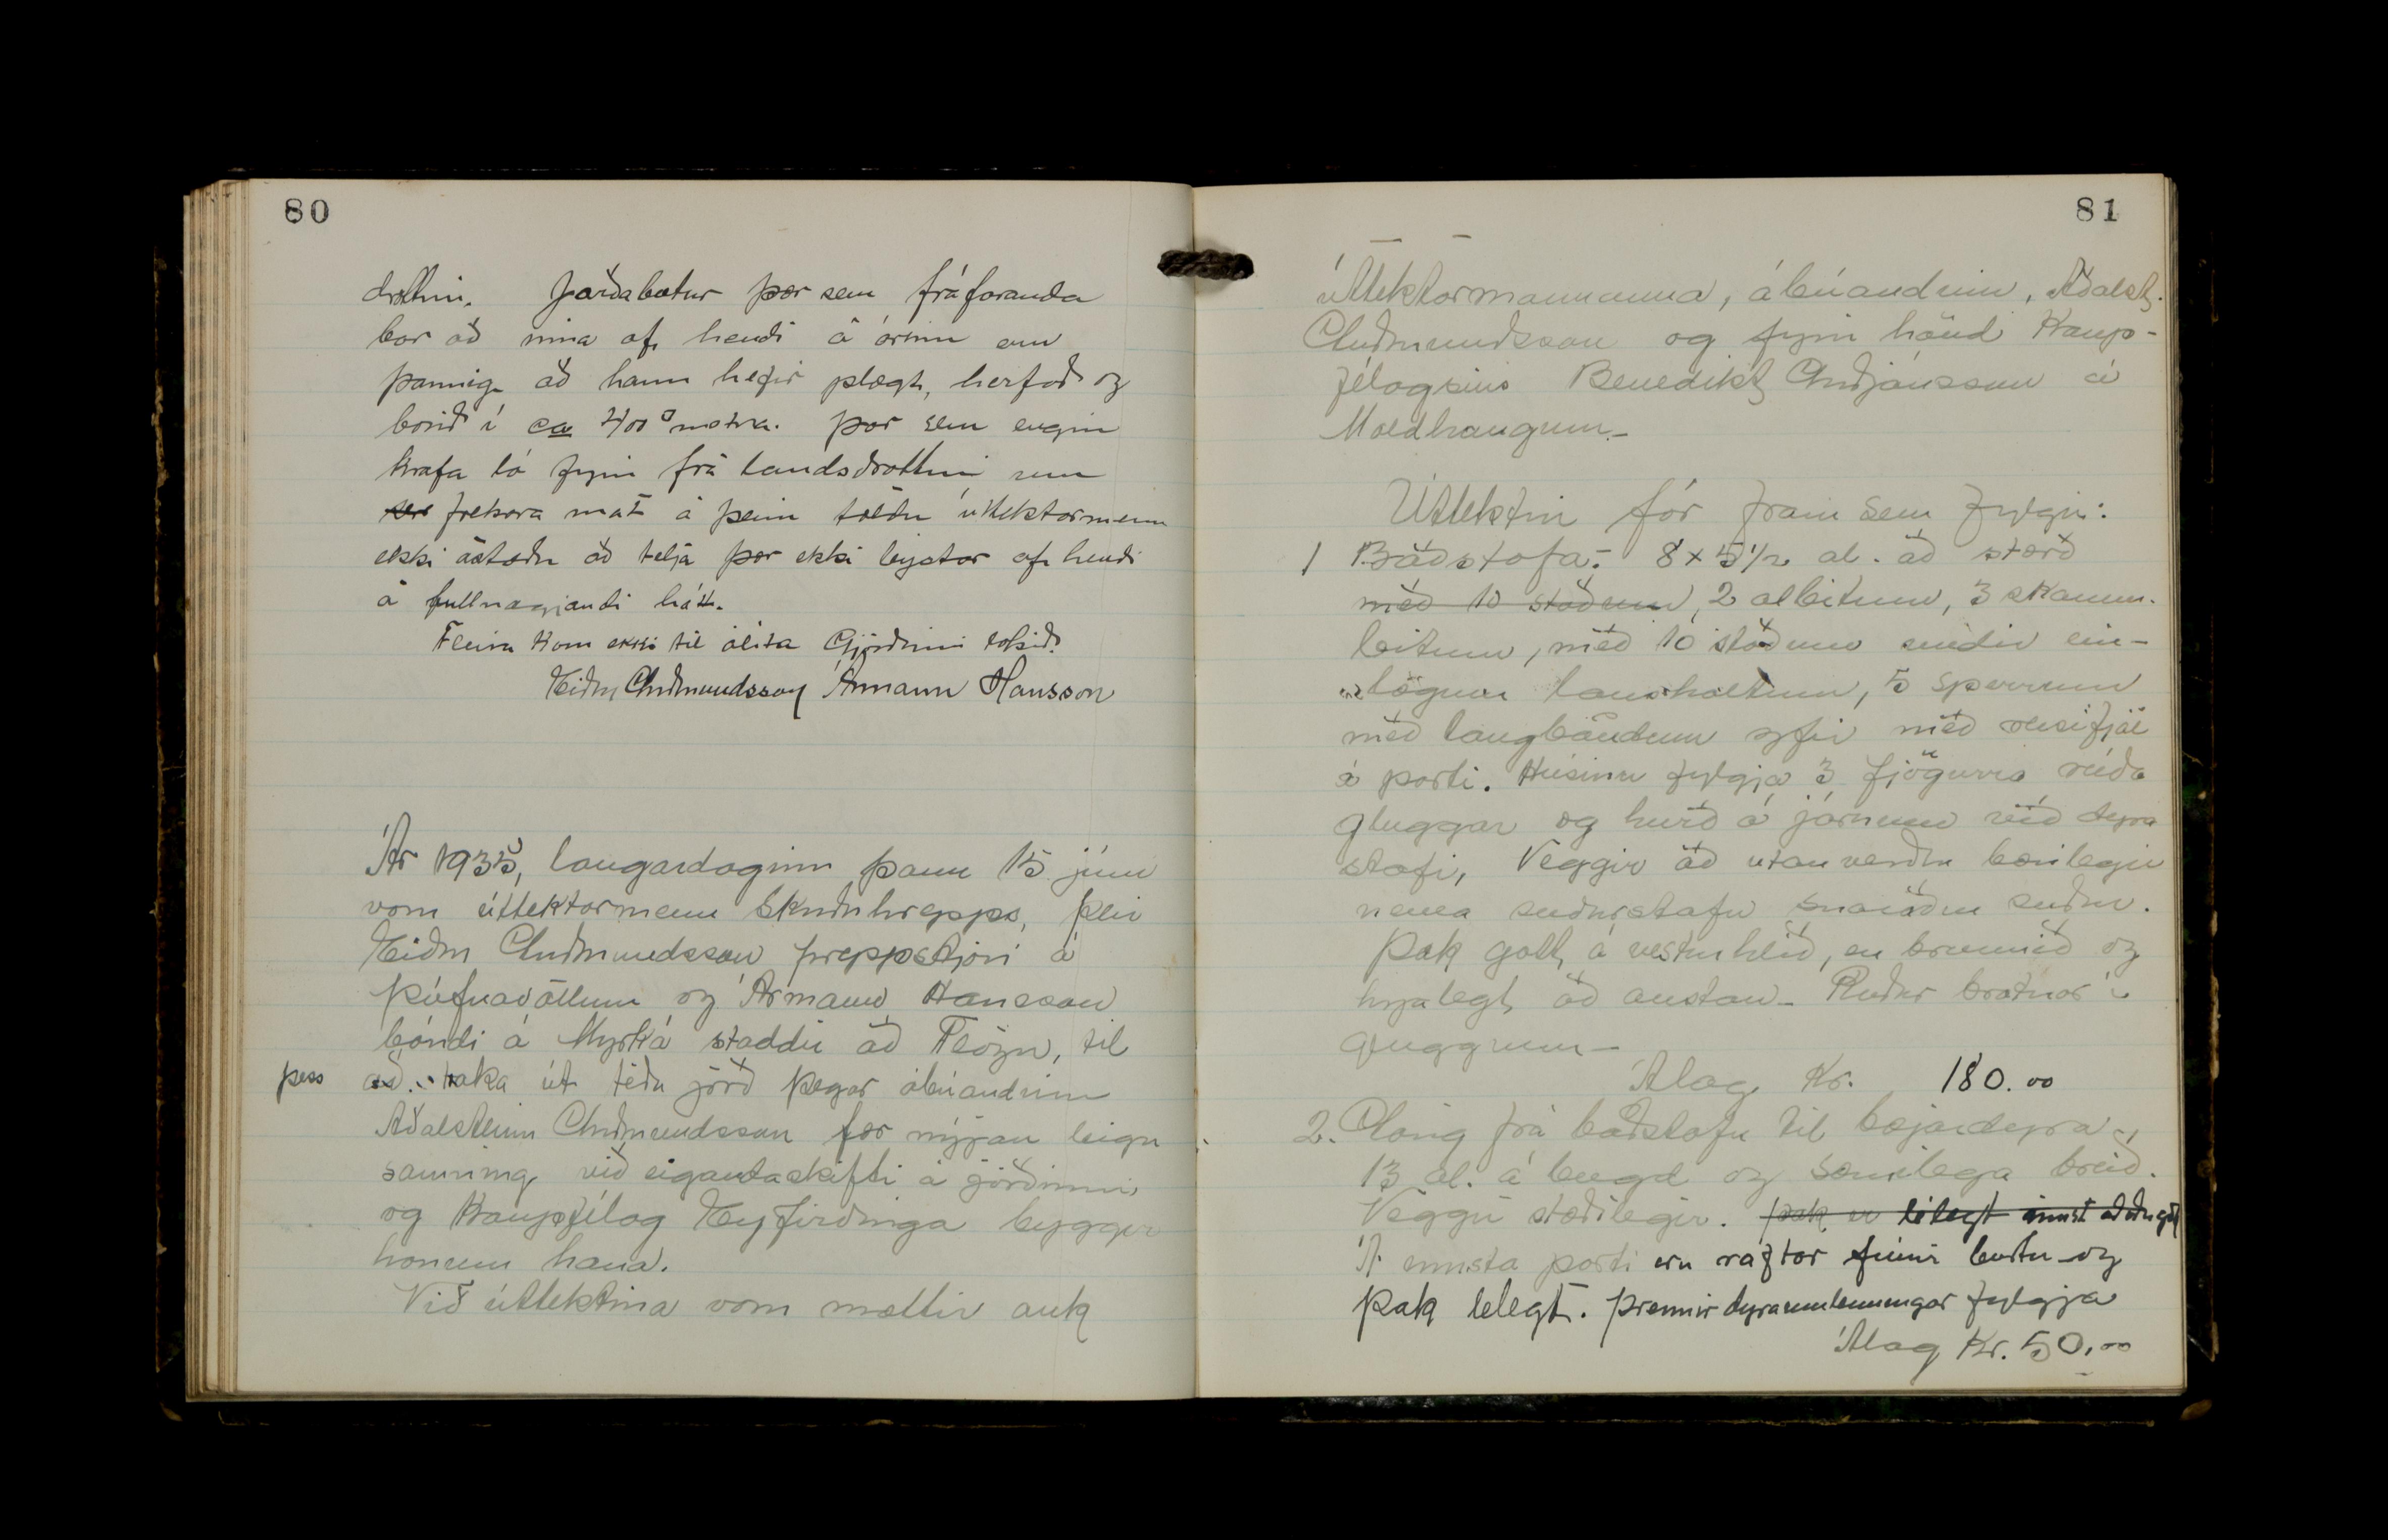 80
drottni. Jarðabætur þær sem fráfaranda
bar að inna af hendi á árinu eru
þannig að hann hefir plægt, herfað og
borið í ca 400 □ metra. Þar sem engin
krafa lá fyrir frá landsdrottni um
frekara mat á þeim töldu úttektarmenn
ekki ástæðu að telja þær ekki leystar af hendi
á fullnægjandi hátt.
Fleira kom ekki til álita Gjörðinni lokið.
Eiður Guðmundsson Ármann Hansson
Ár 1935, laugardaginn þann 15 júní
voru úttektarmenn Skriðuhrepps, þeir
Eiður Guðmundsson hreppstjóri á
Þúfnavöllum og Ármann Hansson
bóndi á Myrká staddir að Flögu, til
þess að taka út téða jörð þegar ábúandinn
Aðalsteinn Guðmundsson fær nýjan leigu
samning við eigandaskifti á jörðinni
og Kaupfélag Eyfirðinga byggir
honum hana.
Við úttektina voru mættir auk
81
úttektarmannanna, ábúandinn, Aðalst.
Guðmundsson og fyrir hönd Kaup-
félagsins Benedikt Guðjónsson á
Moldhaugum.-
Úttektin fór fram sem fylgir:
1 Baðstofa:- 8 x 5 1/2 al. að stærð
með 10 stöðum, 2 albitum, 3 skamm-
bitum, með 10 stöðum undir ein-
lögum lausholtum, 5 sperrum
með langböndum yfir með reisifjöl
á porti. Húsinu fylgja 3 fjögurra rúða
gluggar og hurð á járnum við dyra
stafi, Veggir að utanverðu bærilegir
nema suðurstafn snaraður suður.
Þak gott á vesturhlið, en brunnið og
hrjálegt að austan- Rúður brotnar í
gluggum-
Álag Kr. 180.00
2. Göng frá baðstofu til bæjardyra,
13 al. á lengd og sæmilega breið.
Veggir stæðilegir. Þak er lélegt innst
Á innsta parti eru raftar fúnir burtu og
þak lélegt. Þrennir dyraumbúningar fylgja
Álag Kr. 50,00